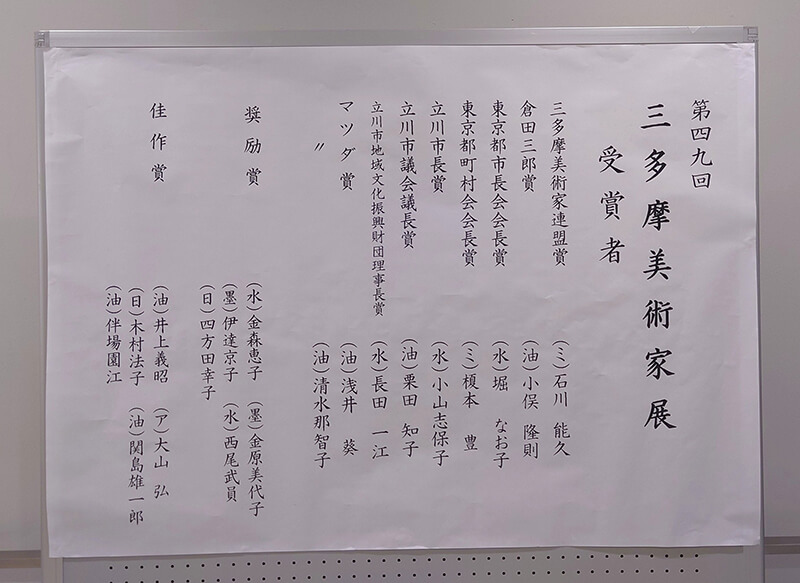 第四九回
三多摩美術家展
受賞者
三多摩美術家連盟賞 (ミ)石川 能久
倉田三郎賞 (油)小俣 隆則
東京都市長会会長賞 (水)堀 なお子
東京都町村会会長賞 (ミ)榎本 豊
立川市長賞 (水)小山志保子
立川市議会議長賞 (油)栗田 知子
立川市地域文化振興財団理事長賞 (水)長田 一江
マツダ賞 (油)浅井 葵
〃 (油)清水那智子
奨励賞 (水)金森恵子 (墨)金原美代子
(墨)伊達京子 (水)西尾武員
(日)四方田幸子
佳作賞 (油)井上義昭 (ア)大山 弘
(日)木村法子 (油)関島雄一郎
(油)伴場園江